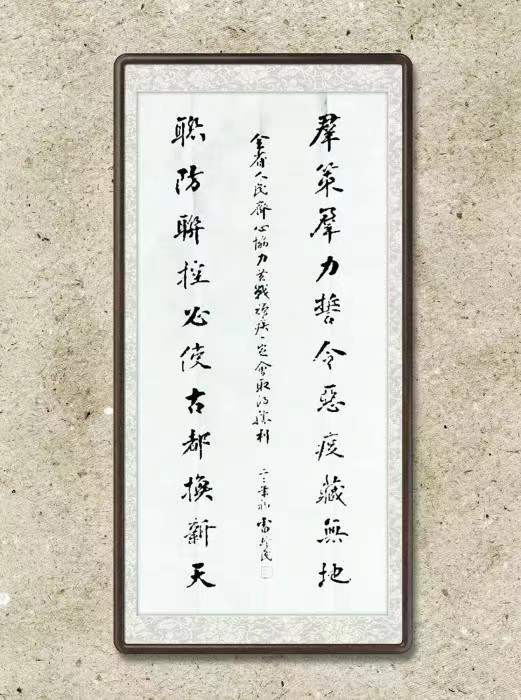 羣策羣力誓令惡疫藏無地
聯防聯控必使古都換新天
全省人民齊心協力共戰頑疾一定會取得勝利